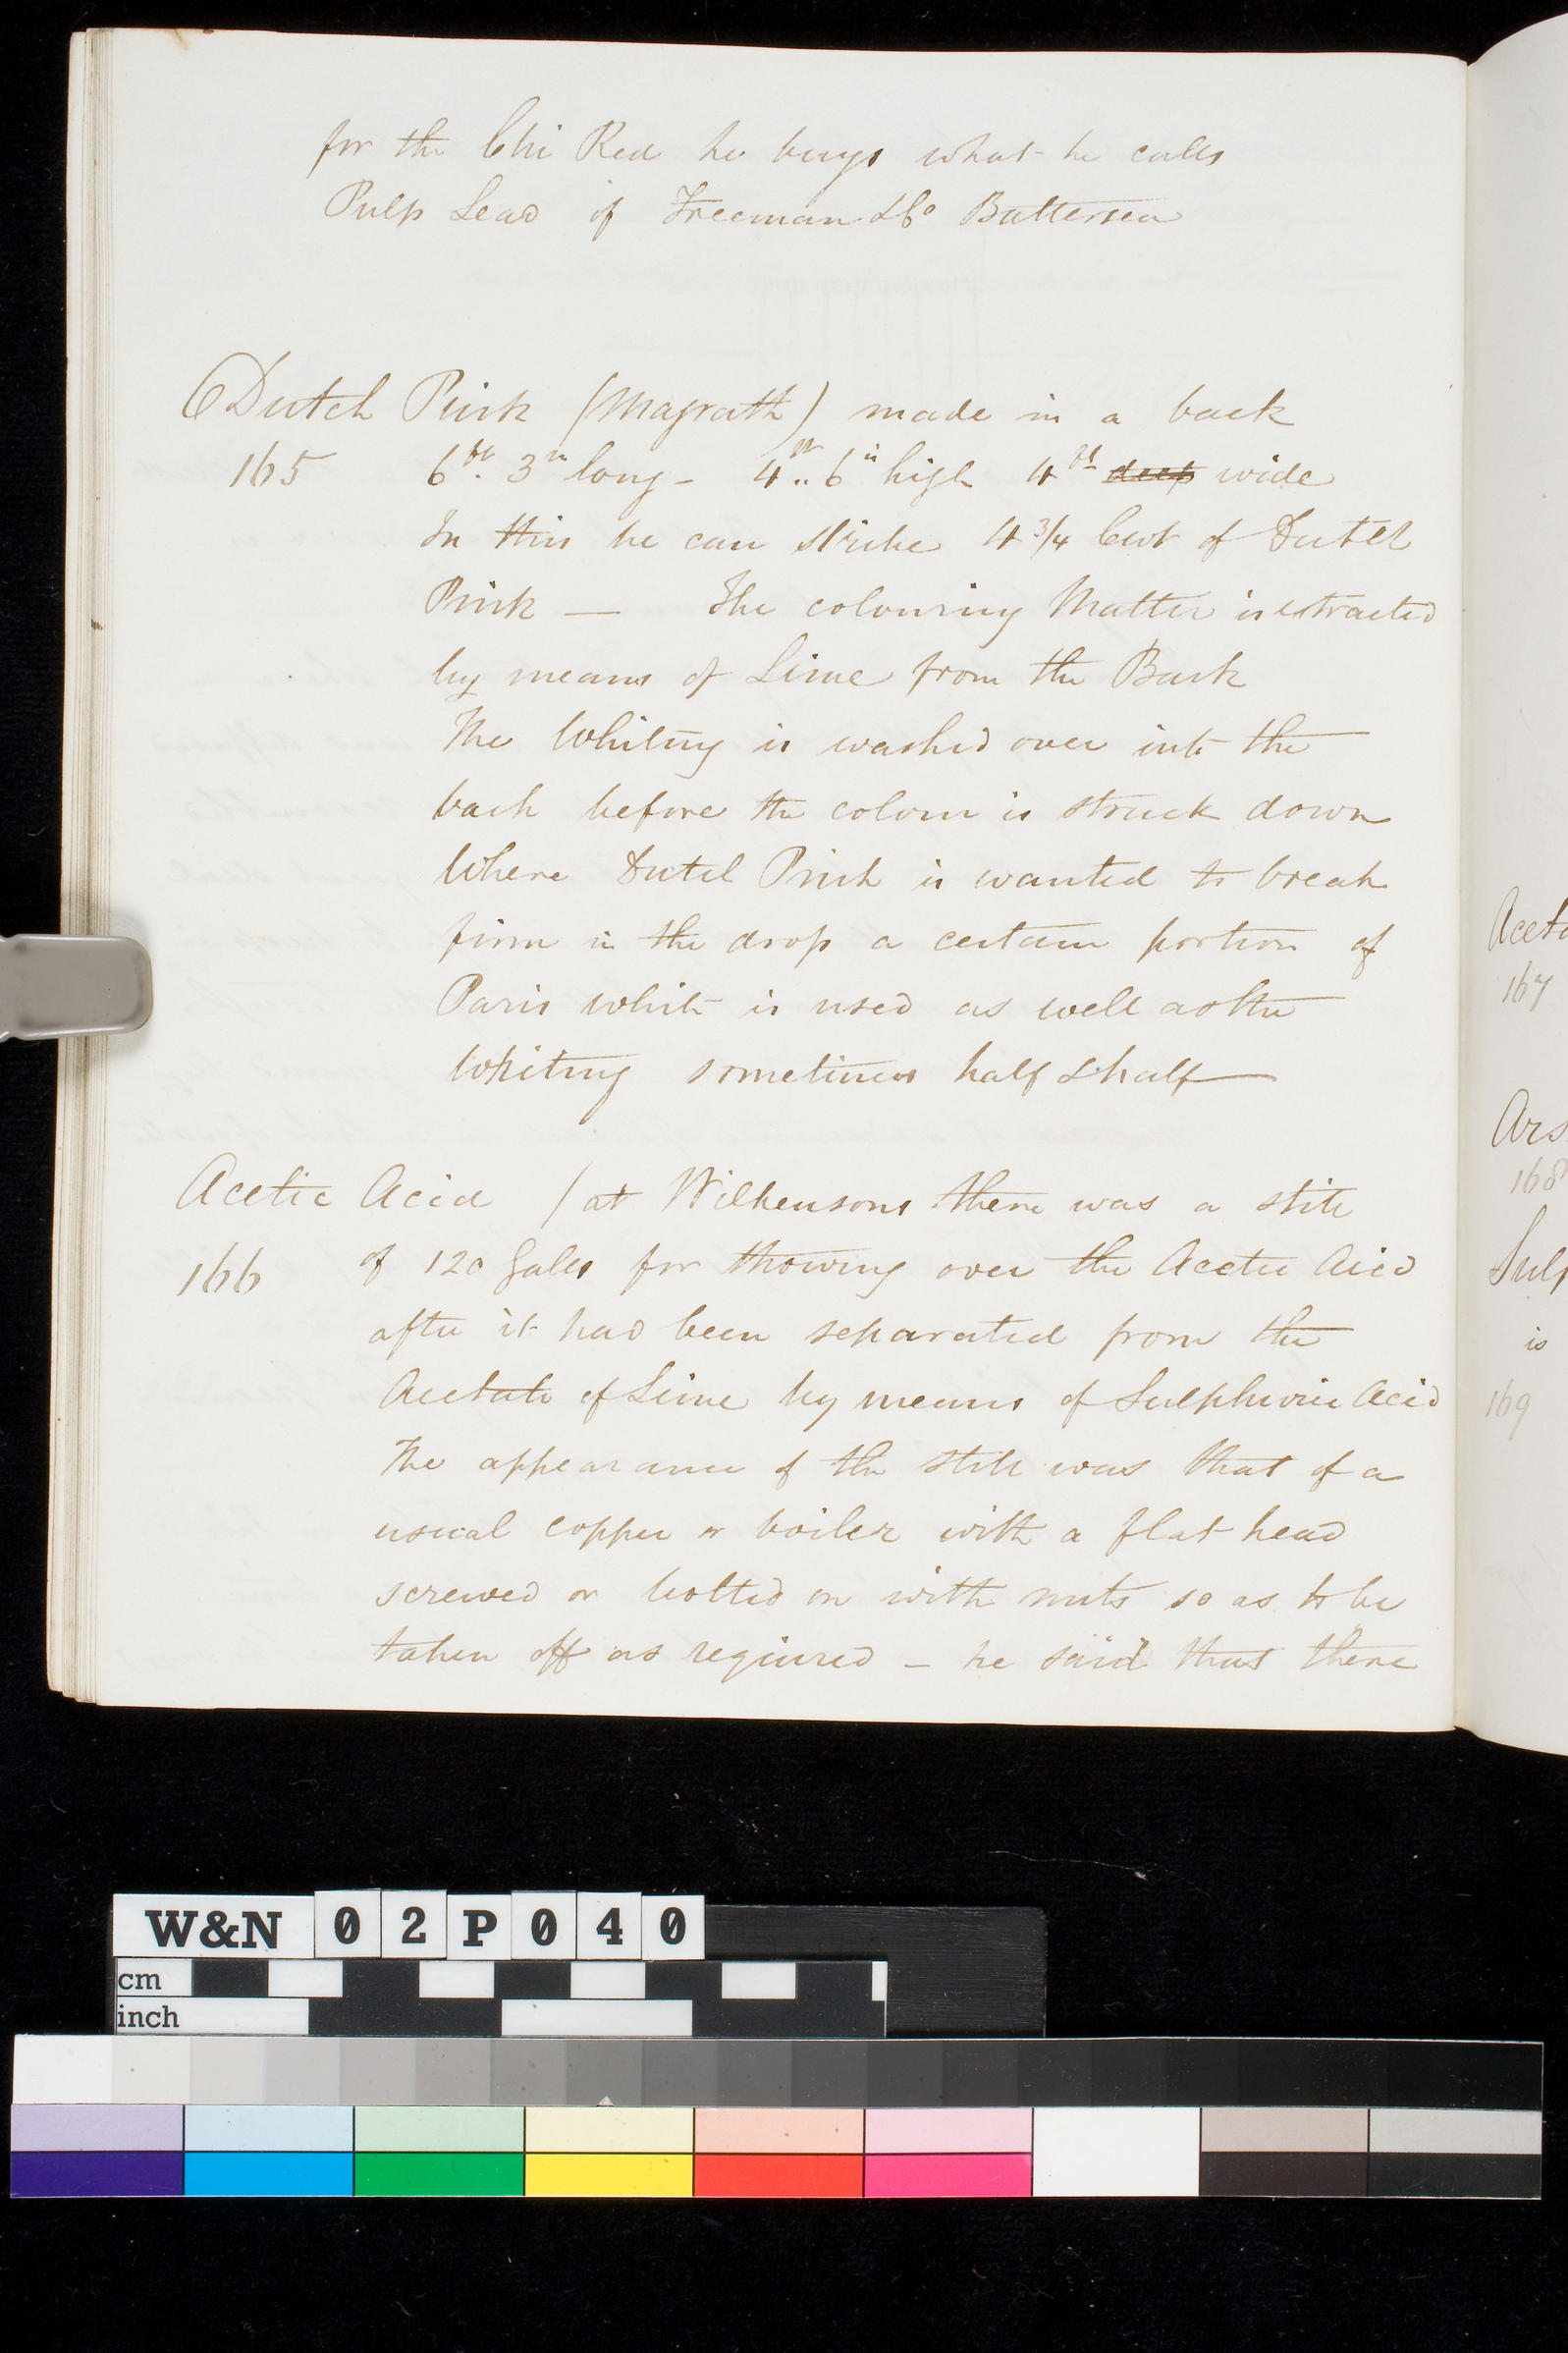 for the Chi Red he buys what he calls
Pulp Lead of Freeman & Co Battersea
Dutch Pink (Magrath) made in a back
165 6ft. 3in long - 4ft.. 6in high 4ft deep wide
In this he can strike 4 3/4 Cwt of Dutch
Pink — The colouring Matter is extracted
by means of Lime from the Bark
The Whiting is washed over into the
back before the colour is struck down
Where Dutch Pink is wanted to break
firm in the drop a certain portion of
Paris white is used as well as the
Whiting sometimes half & half
Acetic Acid / at Wilkensons there was a still
166 of 120 Galls for throwing over the Acetic Acid
after it had been separated from the
Acetate of Lime by means of Sulphuric Acid
The appearance of the still was that of a
usual copper or boiler with a flat head
screwed or bolted on with nuts so as to be
taken off as required - he said that there
Aceta
167
Ars
168
Sulp
is
169
W&N 02P040
cm
inch